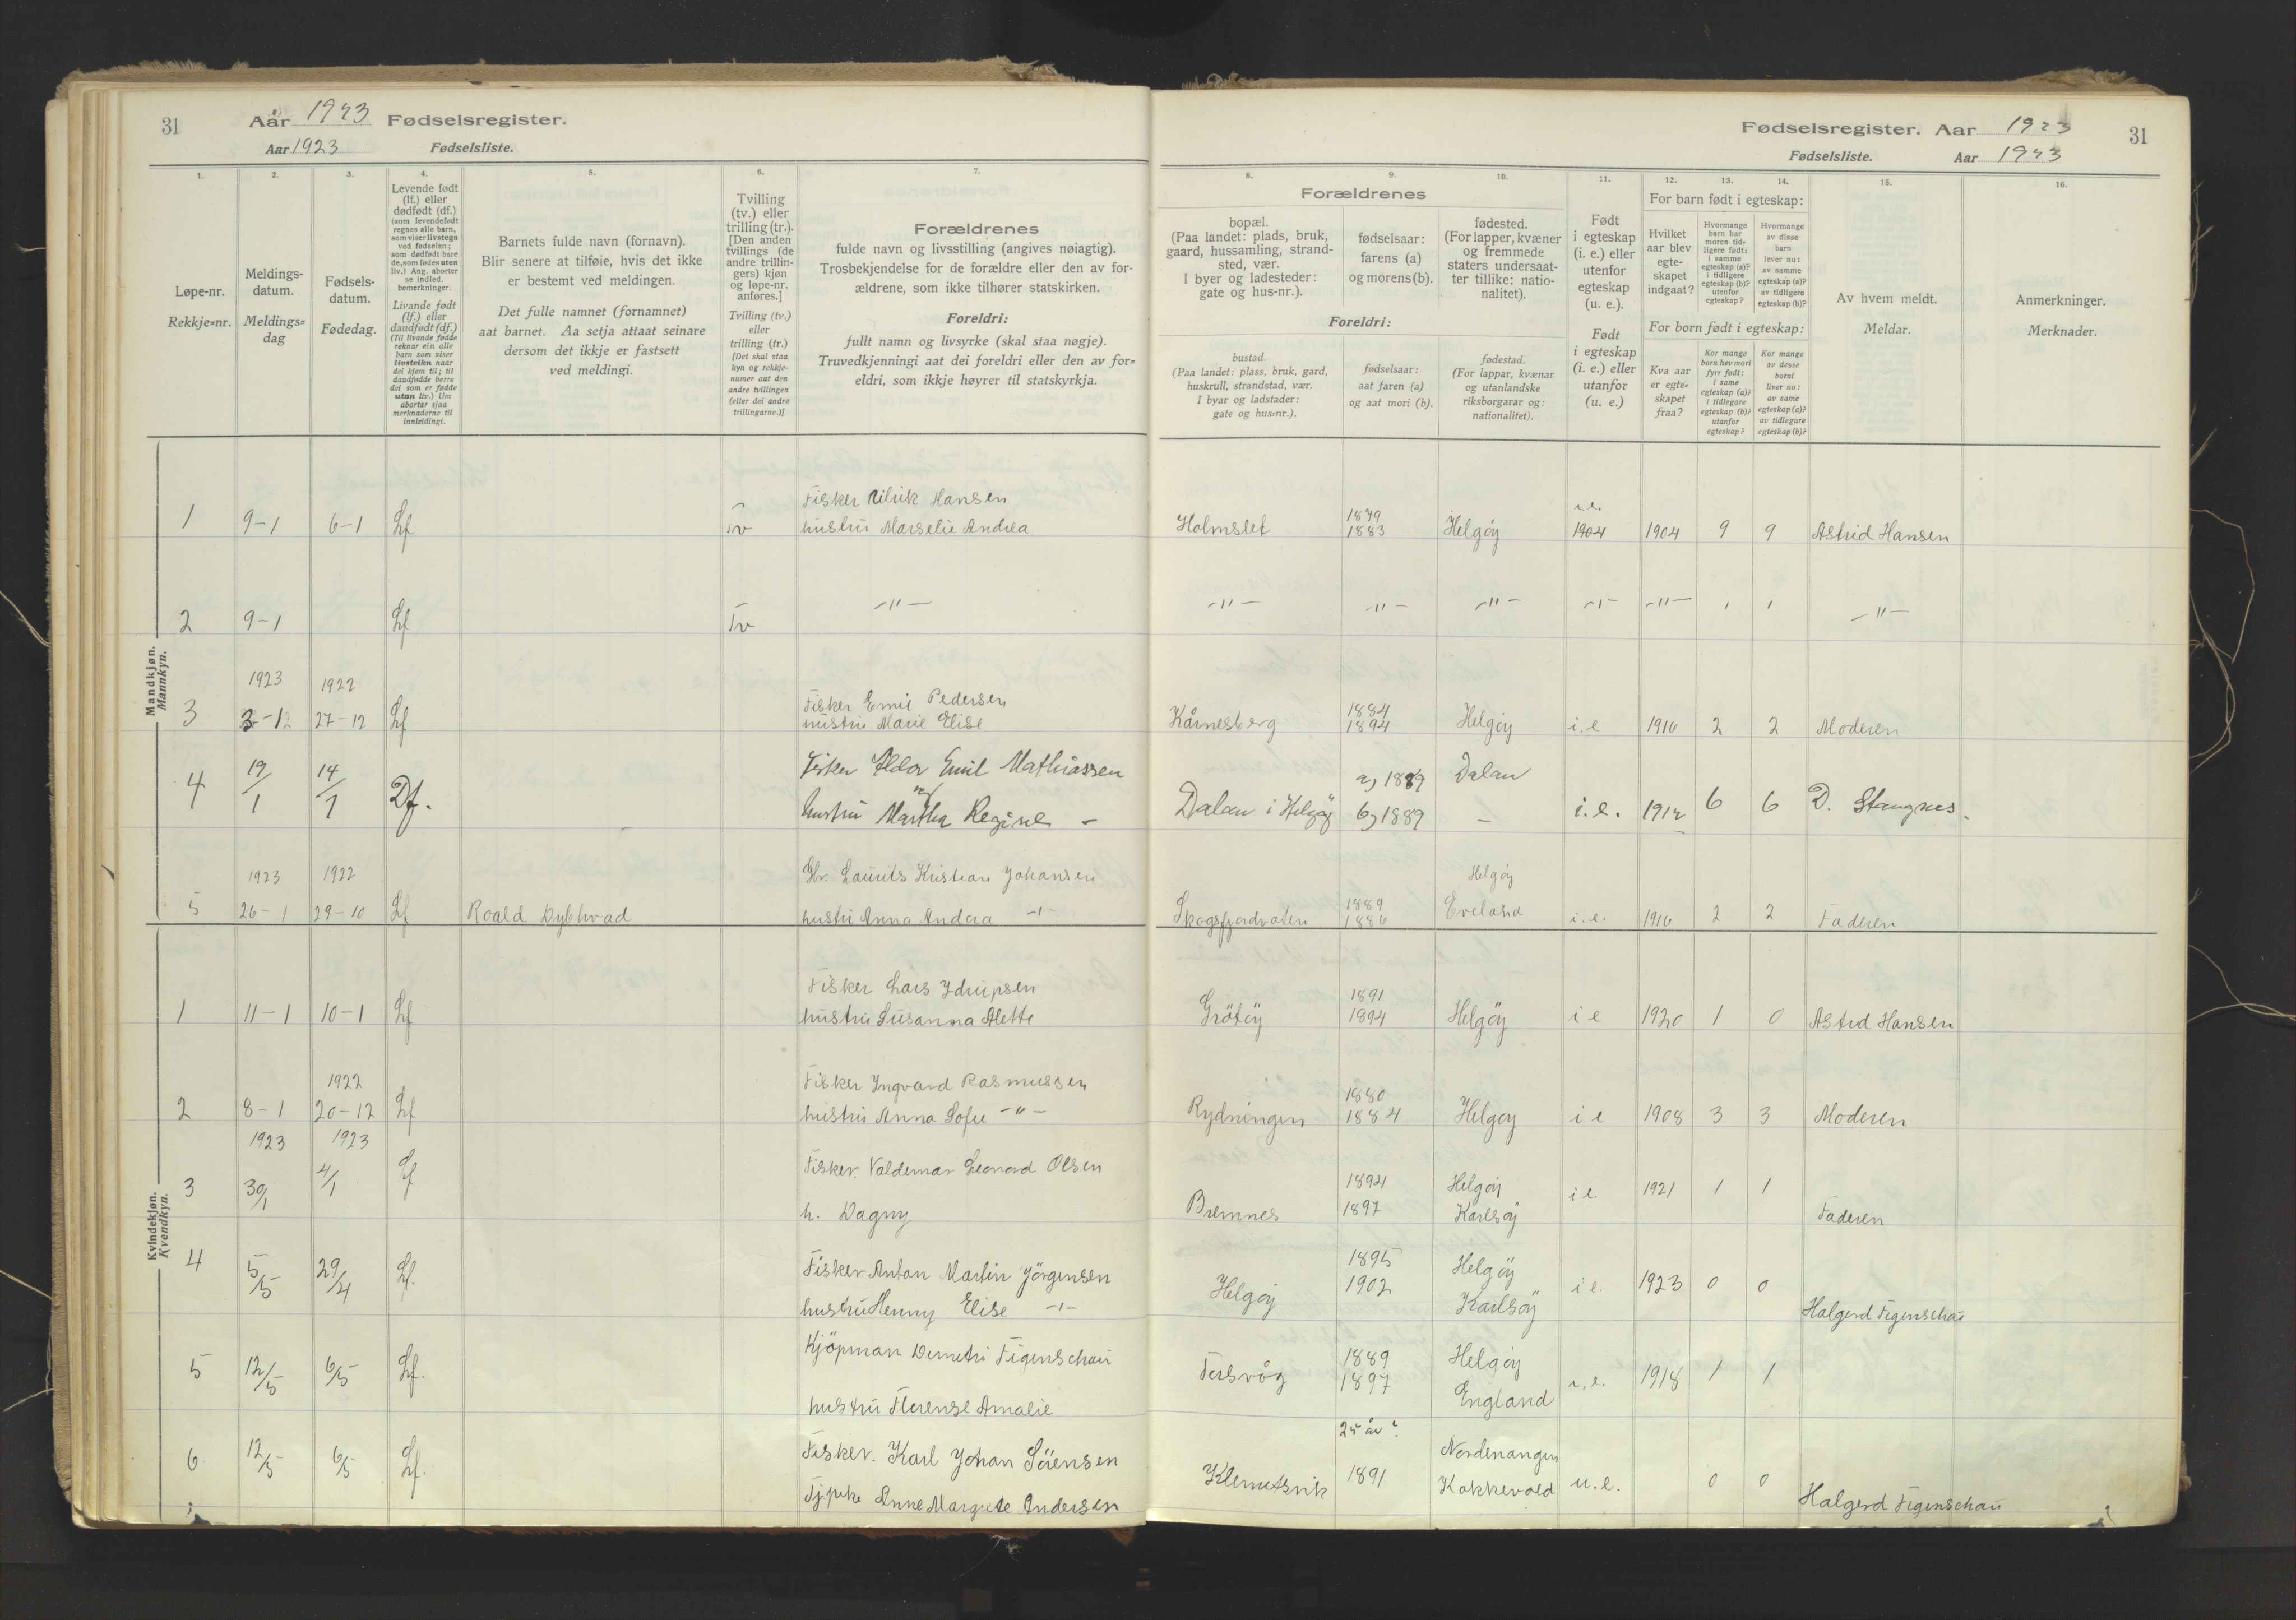 31 Aar 1923 Fødselsregister.
Aar 1923 Fødselsliste.
Fødselsregister. Aar 1923 31
Fødselsliste. Aar 1923
1.
Løpe-nr.
Rekkje=nr.
2.
Meldings-
datum.
Meldings=
dag
3.
Fødsels-
datum.
Fødedag.
4.
Levende født
(lf.) eller
dødfødt (df.)
(som levendefødt
regnes alle barn,
som viser livstegn
ved fødselen;
som dødfødt bare
de, som fødes uten
liv.) Ang. aborter
se indled.
bemerkninger.
Livande født
(lf.) eller
daudfødt (df.)
(Til livande fødde
reknar ein alle
barn som viser
livsteikn naar
dei kjem til; til
daudfødde berre
dei som er fødde
utan liv.) Um
abortar sjaa
merknaderne til
innleidingi.
5.
Barnets fulde navn (fornavn).
Blir senere at tilføie, hvis det ikke
er bestemt ved meldingen.
Det fulle namnet (fornamnet)
aat barnet. Aa setja attaat seinare
dersom det ikkje er fastsett
ved meldingi.
6.
Tvilling
(tv.) eller
trilling (tr.).
[Den anden
tvillings (de
andre trillin-
gers) kjøn
og løpe-nr.
anføres.]
Tvilling (tv.)
eller
trilling (tr.)
[Det skal staa
kyn og rekkje-
numer aat den
andre tvillingen
(eller dei andre
trillingarne.)]
7.
Forældrenes
fulde navn og livsstilling (angives nøiagtig).
Trosbekjendelse for de forældre eller den av for-
ældrene, som ikke tilhører statskirken.
Foreldri:
fullt namn og livsyrke (skal staa nøgje).
Truvedkjenningi aat dei foreldri eller den av for=
eldri, som ikkje høyrer til statskyrkja.
Forældrenes
8.
bopæl.
(Paa landet: plads, bruk,
gaard, hussamling, strand-
sted, vær.
I byer og ladesteder:
gate og hus-nr.).
9.
fødselsaar:
farens (a)
og morens (b).
10.
fødested.
(For lapper, kvæner
og fremmede
staters undersaat-
ter tillike: natio-
nalitet).
Foreldri:
bustad.
(Paa landet: plass, bruk, gard,
huskrull, strandstad, vær.
I byar og ladstader:
gate og hus=nr.).
fødselsaar:
aat faren (a)
og aat mori (b).
fødestad.
(For lappar, kvænar
og utanlandske
riksborgarar og:
nationalitet).
11.
Født
i egteskap
(i. e.) eller
utenfor
egteskap
(u. e.).
Født
i egteskap
(i. e.) eller
utanfor
(u. e.)
For barn født i egteskap:
12.
Hvilket
aar blev
egte-
skapet
indgaat?
13.
Hvormange
barn har
moren tid-
ligere født:
i samme
egteskap (a)?
i tidligere
egteskap (b)?
utenfor
egteskap?
14.
Hvormange
av disse
barn
lever nu:
av samme
egteskap (a)?
av tidligere
egteskap (b)?
For born født i egteskap:
Kva aar
er egte-
skapet
fraa?
Kor mange
born hev mori
fyrr født:
i same
egteskap (a)?
i tidlegare
egteskap (b)?
utanfor
egteskap?
Kor mange
av desse
borni
liver no:
av same
egteskap (a)?
av tidlegare
egteskap (b)?
15.
Av hvem meldt.
Meldar.
16.
Anmerkninger.
Merknader.
Mandkjøn.
Mannkyn.
Fisker Ulrik Hansen 1879 i.e.
1 9-1 6-1 Lf Tv hustru Marselie Andrea Holmslet 1883 Helgöy 1904 1904 9 9 Astrid Hansen
2 9-1 Lf Tv -"- -"- -"- -"- -"- -"- " " -"-
1923 1922 Fisker Emil Pedersen 1884
3 3-1 27-12 Lf hustru Marie Elise Kårnesberg 1894 Helgöy i.e 1916 2 2 Moderen
Fisker Aldor Emil Mathiassen a) 1889 Dalan
4 19/1 14/1 Df. hustru Martha Regine - Dalan i Helgöy b) 1889 - i.e. 1912 6 6 D. Stangnes.
1923 1922 Gbr. Laurits Kristian Johansen 1889 Helgöy
5 26-1 29-10 Lf Roald Dybhvad hustru Anna Andrea -"- Skogsfjordvaten 1886 Eveland i.e. 1916 2 2 Faderen
Kvindekjøn.
Kvendkyn.
Fisker Lars Idrupsen 1891
1 11-1 10-1 Lf hustru Susanna Alette Grötöy 1894 Helgöy i e 1920 1 0 Astrid Hansen
1922 Fisker Ingvard Rasmussen 1880
2 8-1 20-12 Lf hustru Anna Sofie -"- Rydningen 1884 Helgöy i e 1908 3 3 Moderen
1923 1923
3 30/1 4/1 Lf Fisker Valdemar Leonard Olsen 1894 Helgöy i e. 1921 1 1
h. Dagny Bremnes 1897 Karlsöy Faderen
4 5/5 29/4 Lf. Fisker Anton Martin Jörgensen 1895 Helgöy
hustru Henny Elise -"- Helgöy 1902 Karlsöy i e. 1923 0 0 Halgerd Figenschau
5 12/5 6/5 Lf. Kjöpman Demetri Figenschau 1889 Helgöy
hustru Florense Amalie 1897 England i.e. 1918 1 1
25 år?
6 12/5 6/5 Lf. Fisker. Karl Johan Sörensen Nordenangen
Pjpike Anne Margrete Andersen Klemetsvik 1891 Kokkevold u.e. 0 0 Halgerd Figenschau